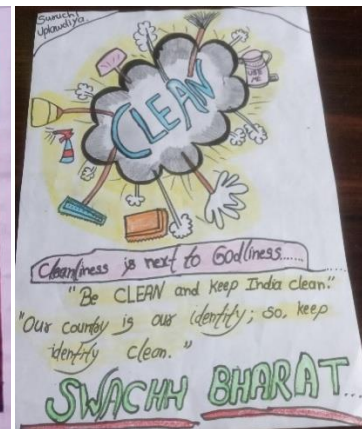 Suruchi
CLEAN
USE
ME
Cleanliness is next to Godliness......
"Be CLEAN and keep India clean."
"Our country is our identity; so, keep
identity clean."
SWACHH BHARAT...